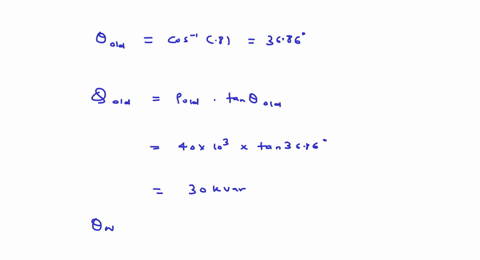 θold = cos⁻¹(.8) = 36.86°
Qold = Pold . tanθold
= 40x10³ x tan36.86°
= 30kvar
θN